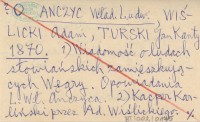 ? O ANCZYC Wład. Ludw. WIŚ-
LICKI Adam, TURSKI Jan Kanty
1870. 1) Wiadomość o ludach
słowiańskich zamieszkują-
cych Węgry. Opowiadania
L. Wł. Anczyca. 2) Kacper Kar-
liński przez Ad. Wiślickiego.